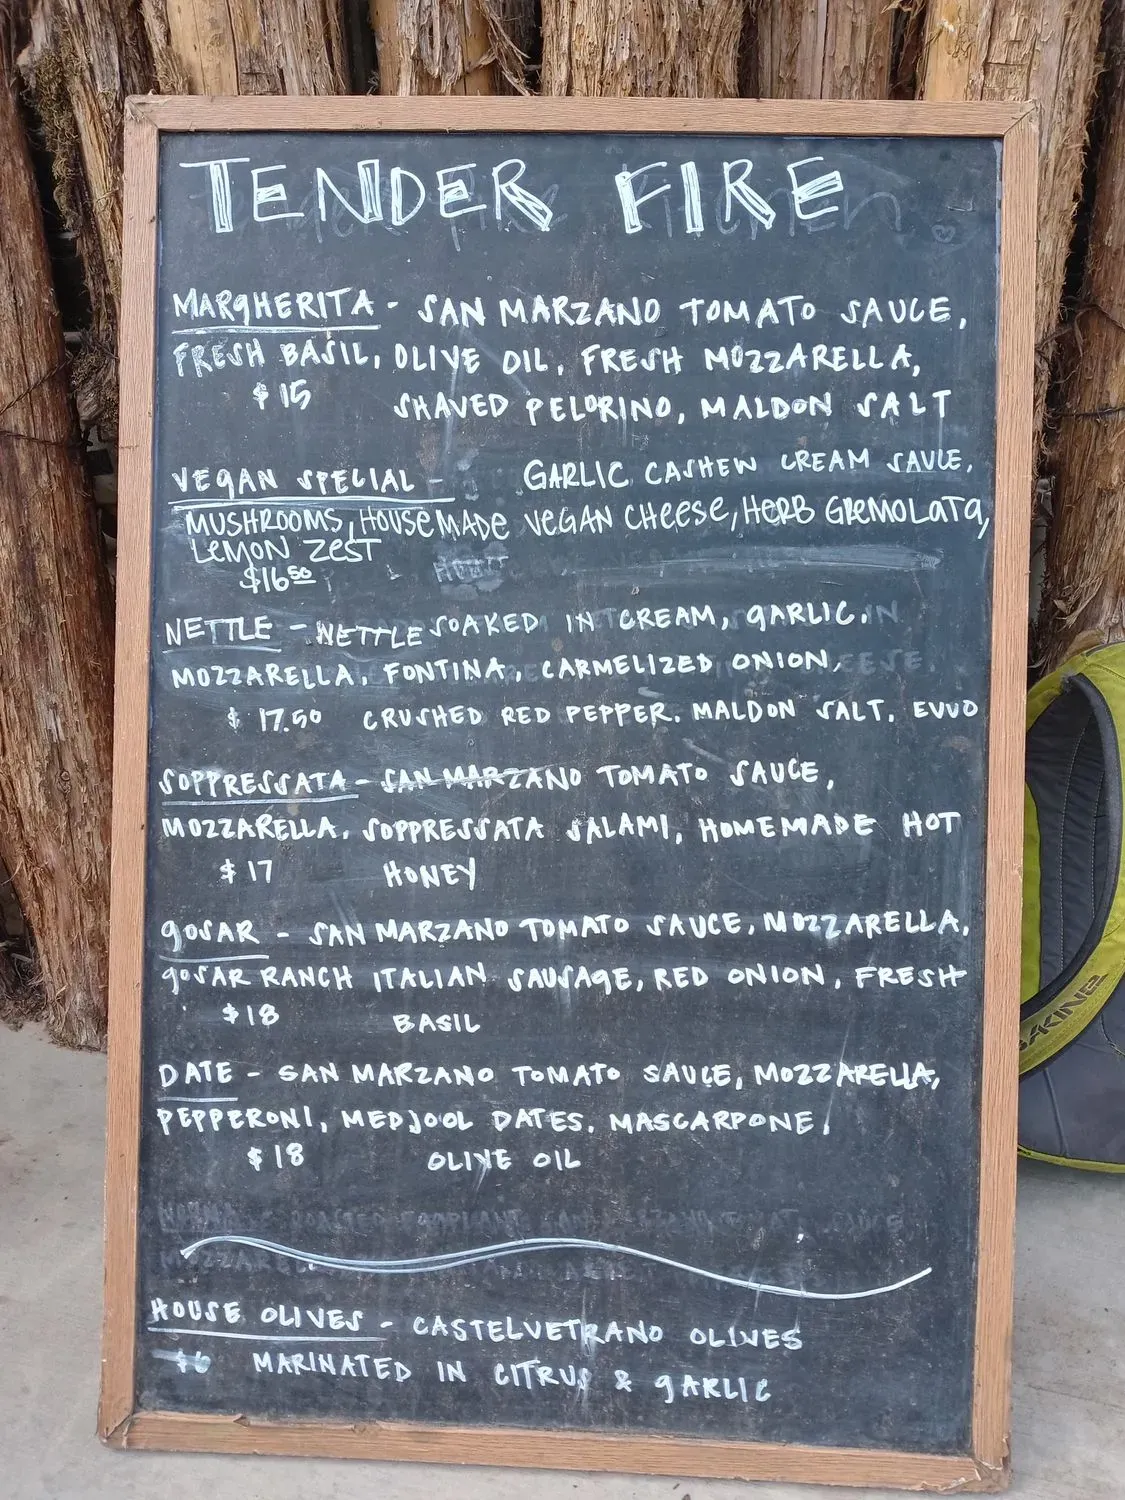 TENDER FIRE
MARGHERITA - SAN MARZANO TOMATO SAUCE,
FRESH BASIL, OLIVE OIL, FRESH MOZZARELLA,
$15 SHAVED PECORINO, MALDON SALT
VEGAN SPECIAL - GARLIC CASHEW CREAM SAUCE,
MUSHROOMS, HOUSEMADE VEGAN CHEESE, HERB GREMOLATA,
LEMON ZEST
$16 50
NETTLE - NETTLE SOAKED IN CREAM, GARLIC,
MOZZARELLA, FONTINA, CARMELIZED ONION,
$ 17.50 CRUSHED RED PEPPER. MALDON SALT, EVVO
SOPPRESSATA - SAN MARZANO TOMATO SAUCE,
MOZZARELLA, SOPPRESSATA SALAMI, HOMEMADE HOT
$17 HONEY
GOSAR - SAN MARZANO TOMATO SAUCE, MOZZARELLA,
GOSAR RANCH ITALIAN SAUSAGE, RED ONION, FRESH
$18 BASIL
DATE - SAN MARZANO TOMATO SAUCE, MOZZARELLA,
PEPPERONI, MEDJOOL DATES, MASCARPONE,
$18 OLIVE OIL
HOUSE OLIVES - CASTELVETRANO OLIVES
$6 MARINATED IN CITRUS & GARLIC
DAKINE